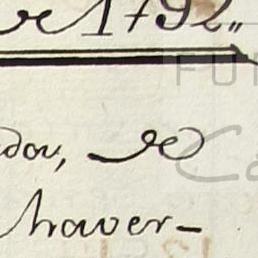 de 1792„
dor, de
haver-